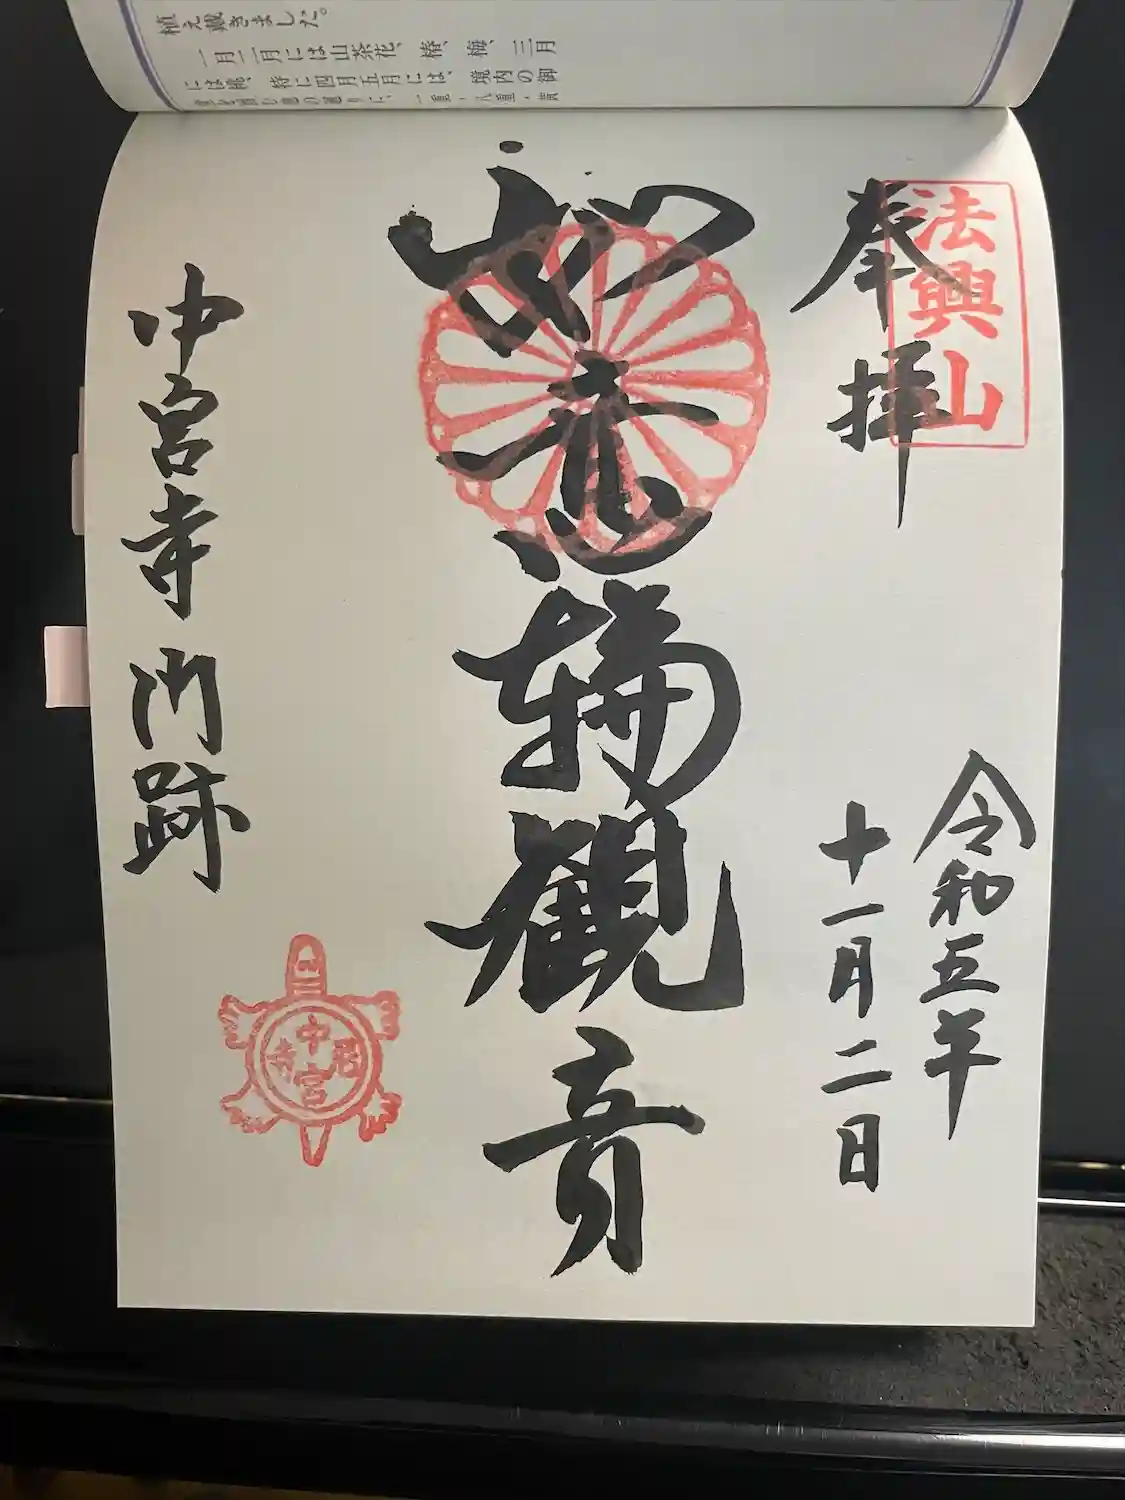 植え戴きました。
一月二月には山茶花、椿、梅、三月
には桃、特に四月五月には、境内の御
法興山
奉拝
令和五年
十一月二日
如意輪観音
中宮寺門跡
中宮
寺